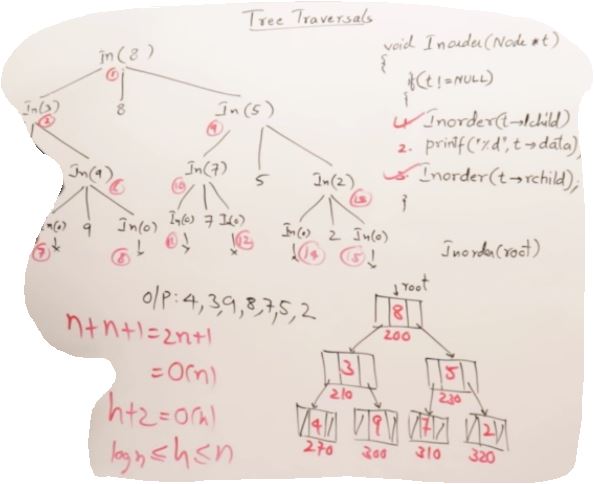 Tree Traversals
In(8)
1
In(3) 8 In(5)
2 9
In(9) In(7) 5 In(2)
6 10 13
In(0) 9 In(0) In(0) 7 In(0) In(0) 2 In(0)
7 8 11 12 14 15
void Inorder(Node *t)
{
if(t!=NULL)
{
1. Inorder(t→lchild)
2. printf("%d", t→data),
3. Inorder(t→rchild);
}
Inorder(root)
O/P: 4, 3, 9, 8, 7, 5, 2
n+n+1=2n+1
=O(n)
h+2=O(n)
log n ≤ h ≤ n
root
8
200
3 5
210 230
4 9 7 2
270 300 310 320